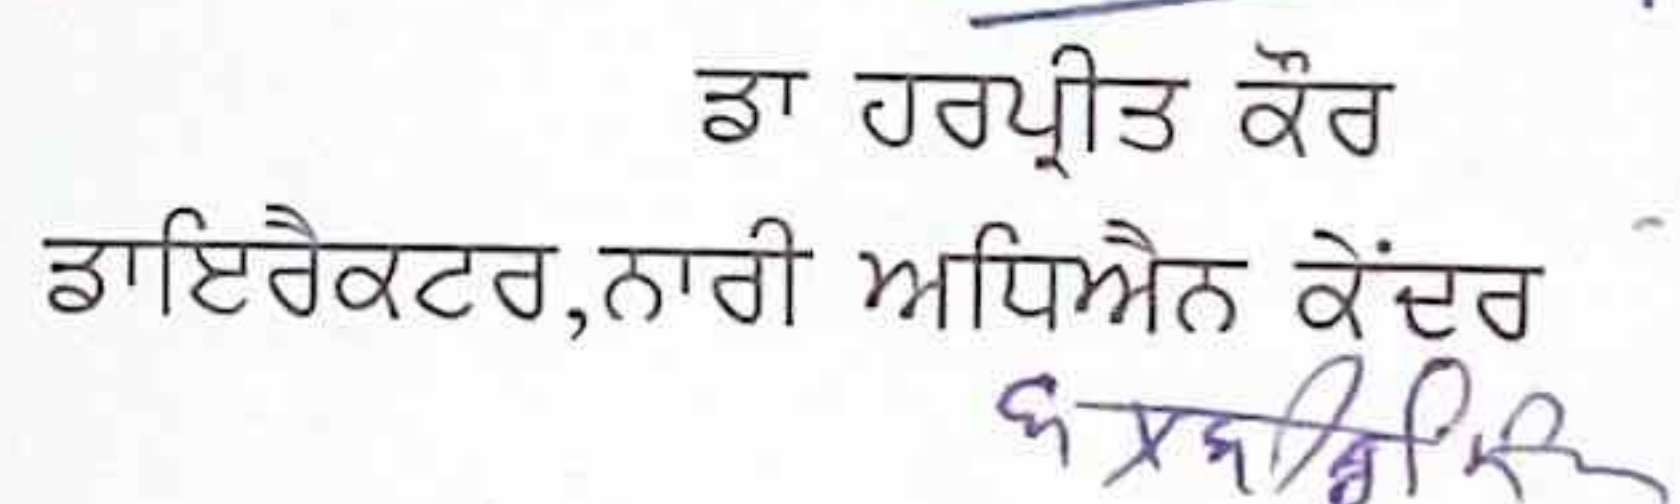 ਡਾ ਹਰਪ੍ਰੀਤ ਕੌਰ
ਡਾਇਰੈਕਟਰ,ਨਾਰੀ ਅਧਿਐਨ ਕੇਂਦਰ